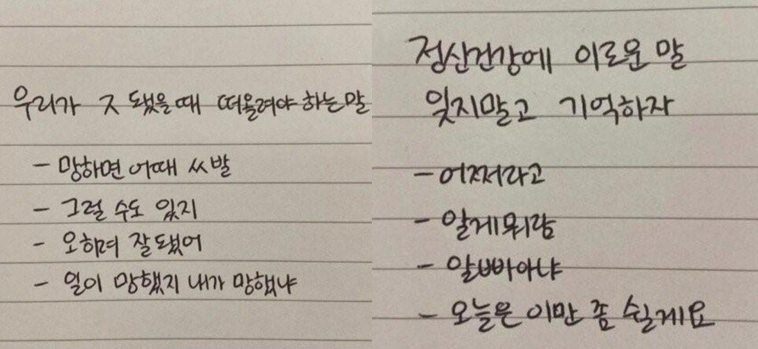 우리가 ㅈ 됐을때 떠올려야 하는 말
- 망하면 어때 ㅆ발
- 그럴 수도 있지
- 오히려 잘됐어
- 일이 망했지 내가 망했냐
정신건강에 이로운 말
잊지말고 기억하자
- 어쩌라고
- 알게뭐람
- 알빠아냐
- 오늘은 이만 좀 쉴게요